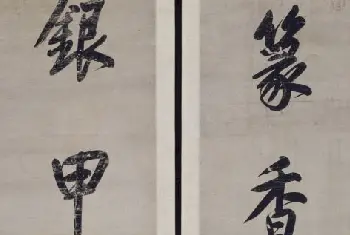 篆香
銀甲